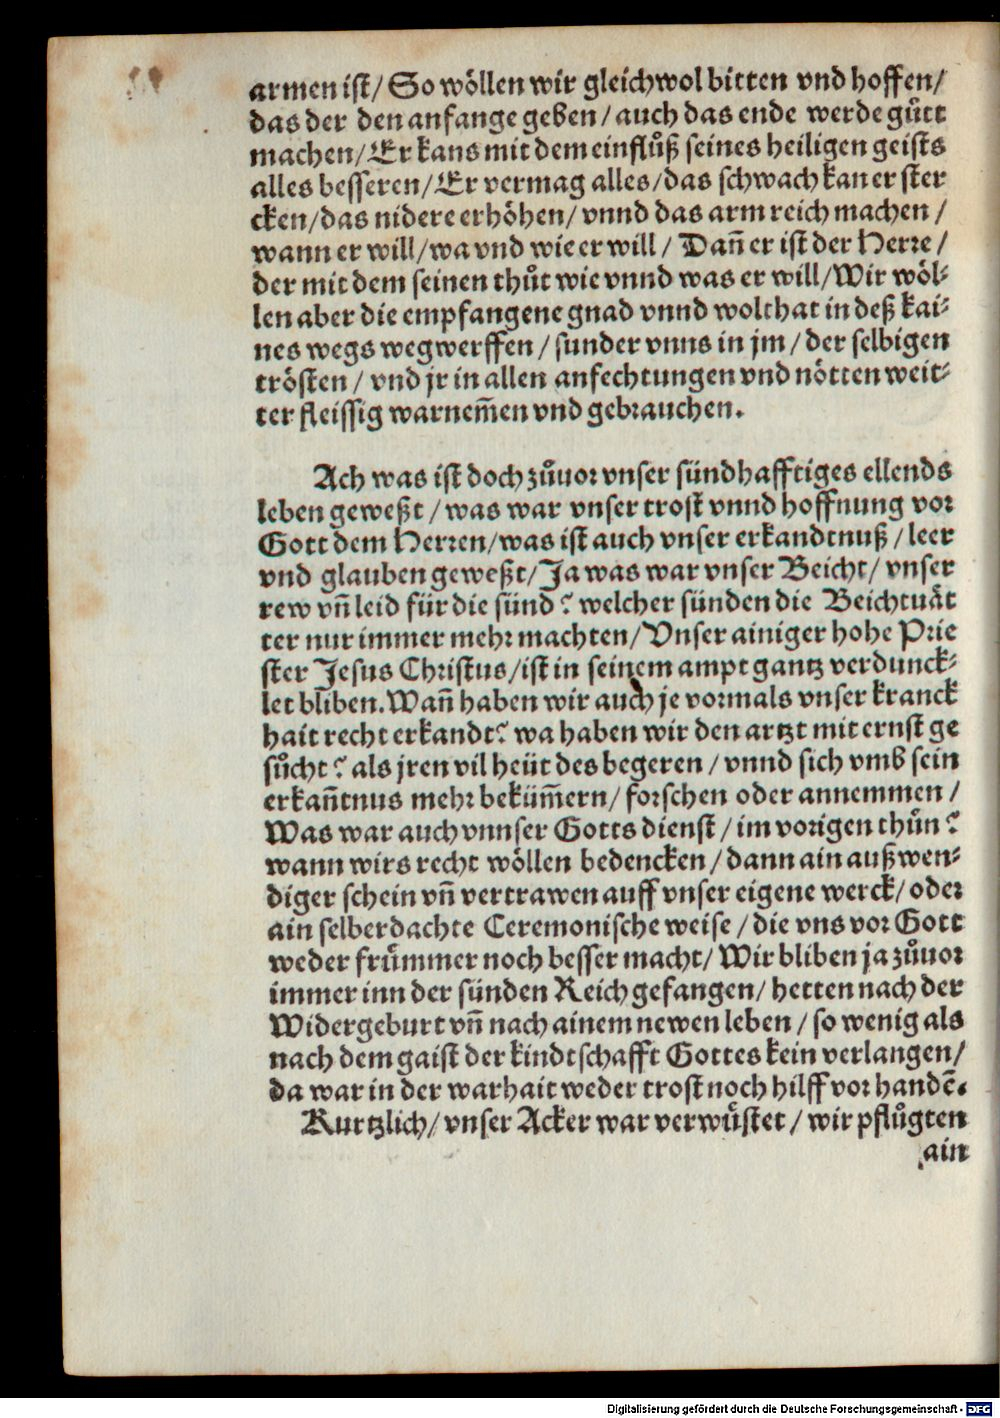 armen ist/ So wöllen wir gleichwol bitten vnd hoffen/
das der den anfange geben/ auch das ende werde gůtt
machen/ Er kans mit dem einflůß seines heiligen geists
alles besseren/ Er vermag alles/ das schwach kan er ster
cken/ das nidere erhöhen/ vnnd das arm reich machen/
wann er will/ wa vnd wie er will/ Dañ er ist der Herre/
der mit dem seinen thůt wie vnnd was er will/ Wir wöl-
len aber die empfangene gnad vnnd wolthat in deß kai-
nes wegs wegwerffen/ sunder vnns in jm/ der selbigen
trösten/ vnd jr in allen anfechtungen vnd nötten weit-
ter fleissig warnem̃en vnd gebrauchen.
Ach was ist doch zůuor vnser sündhafftiges ellends
leben geweßt/ was war vnser trost vnnd hoffnung vor
Gott dem Herren/ was ist auch vnser erkandtnuß/ leer
vnd glauben geweßt/ Ja was war vnser Beicht/ vnser
rew vñ leid für die sünd? welcher sünden die Beichtuåt
ter nur immer mehr machten/ Vnser ainiger hohe Prie
ster Jesus Christus/ ist in seinem ampt gantz verdunck-
let bliben. Wañ haben wir auch je vormals vnser kranck
hait recht erkandt? wa haben wir den artzt mit ernst ge
sůcht? als jren vil heüt des begeren/ vnnd sich vmb sein
erkañtnus mehr beküm̃ern/ forschen oder annemmen/
Was war auch vnnser Gotts dienst/ im vorigen thůn?
wann wirs recht wöllen bedencken/ dann ain außwen-
diger schein vñ vertrawen auff vnser eigene werck/ oder
ain selberdachte Ceremonische weise/ die vns vor Gott
weder frümmer noch besser macht/ Wir bliben ja zůuor
immer inn der sünden Reich gefangen/ hetten nach der
Widergeburt vñ nach ainem newen leben/ so wenig als
nach dem gaist der kindtschafft Gottes kein verlangen/
da war in der warhait weder trost noch hilff vor handẽ.
Kurtzlich/ vnser Acker war verwüstet/ wir pflůgten
ain
Digitalisierung gefördert durch die Deutsche Forschungsgemeinschaft - DFG